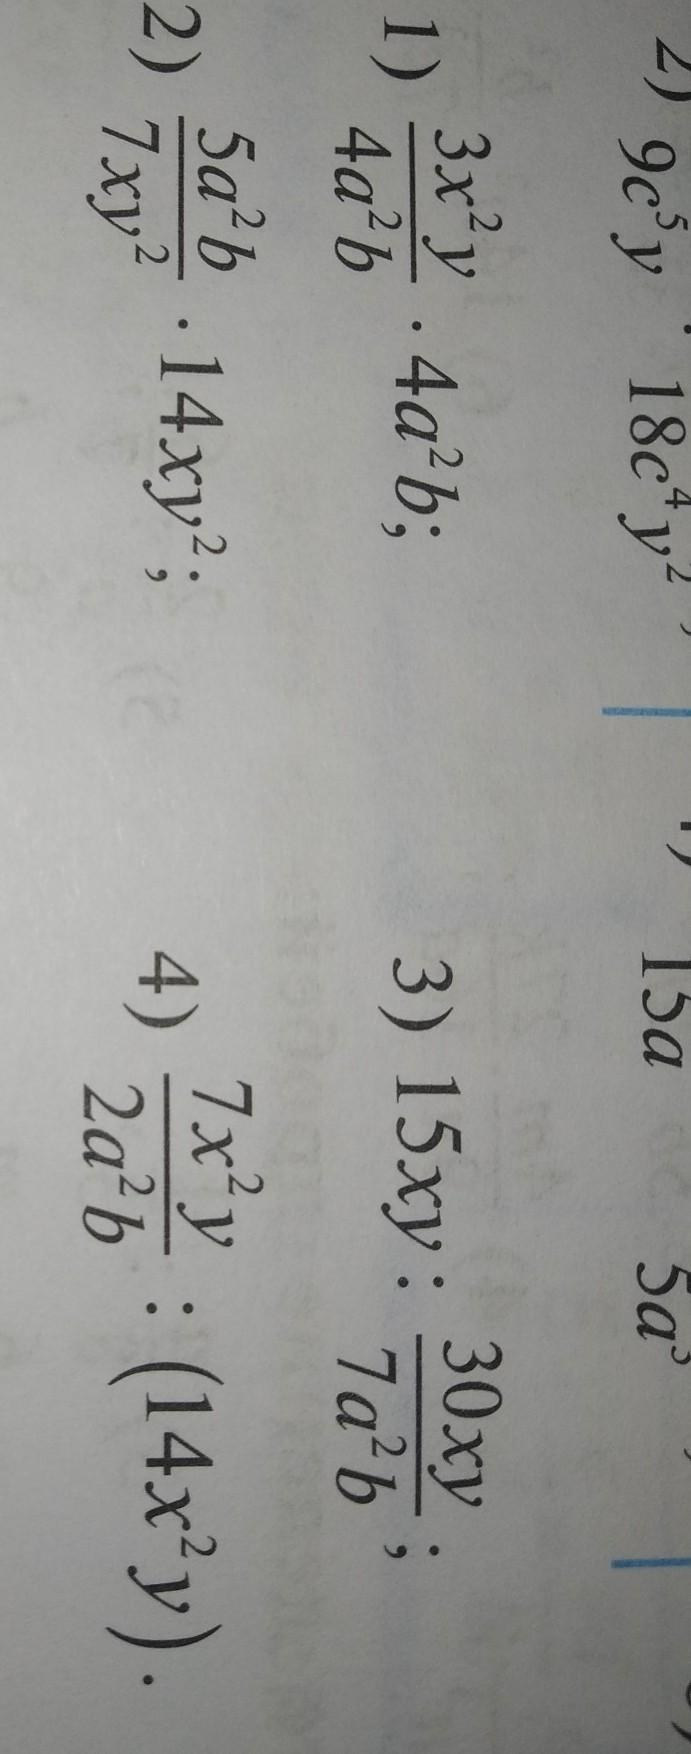 2) 9c⁵y · 18c⁴y² ; 15a 5a³
1) 3x²y/4a²b · 4a²b; 3) 15xy : 30xy/7a²b ;
2) 5a²b/7xy² · 14xy²; 4) 7x²y/2a²b : (14x²y).